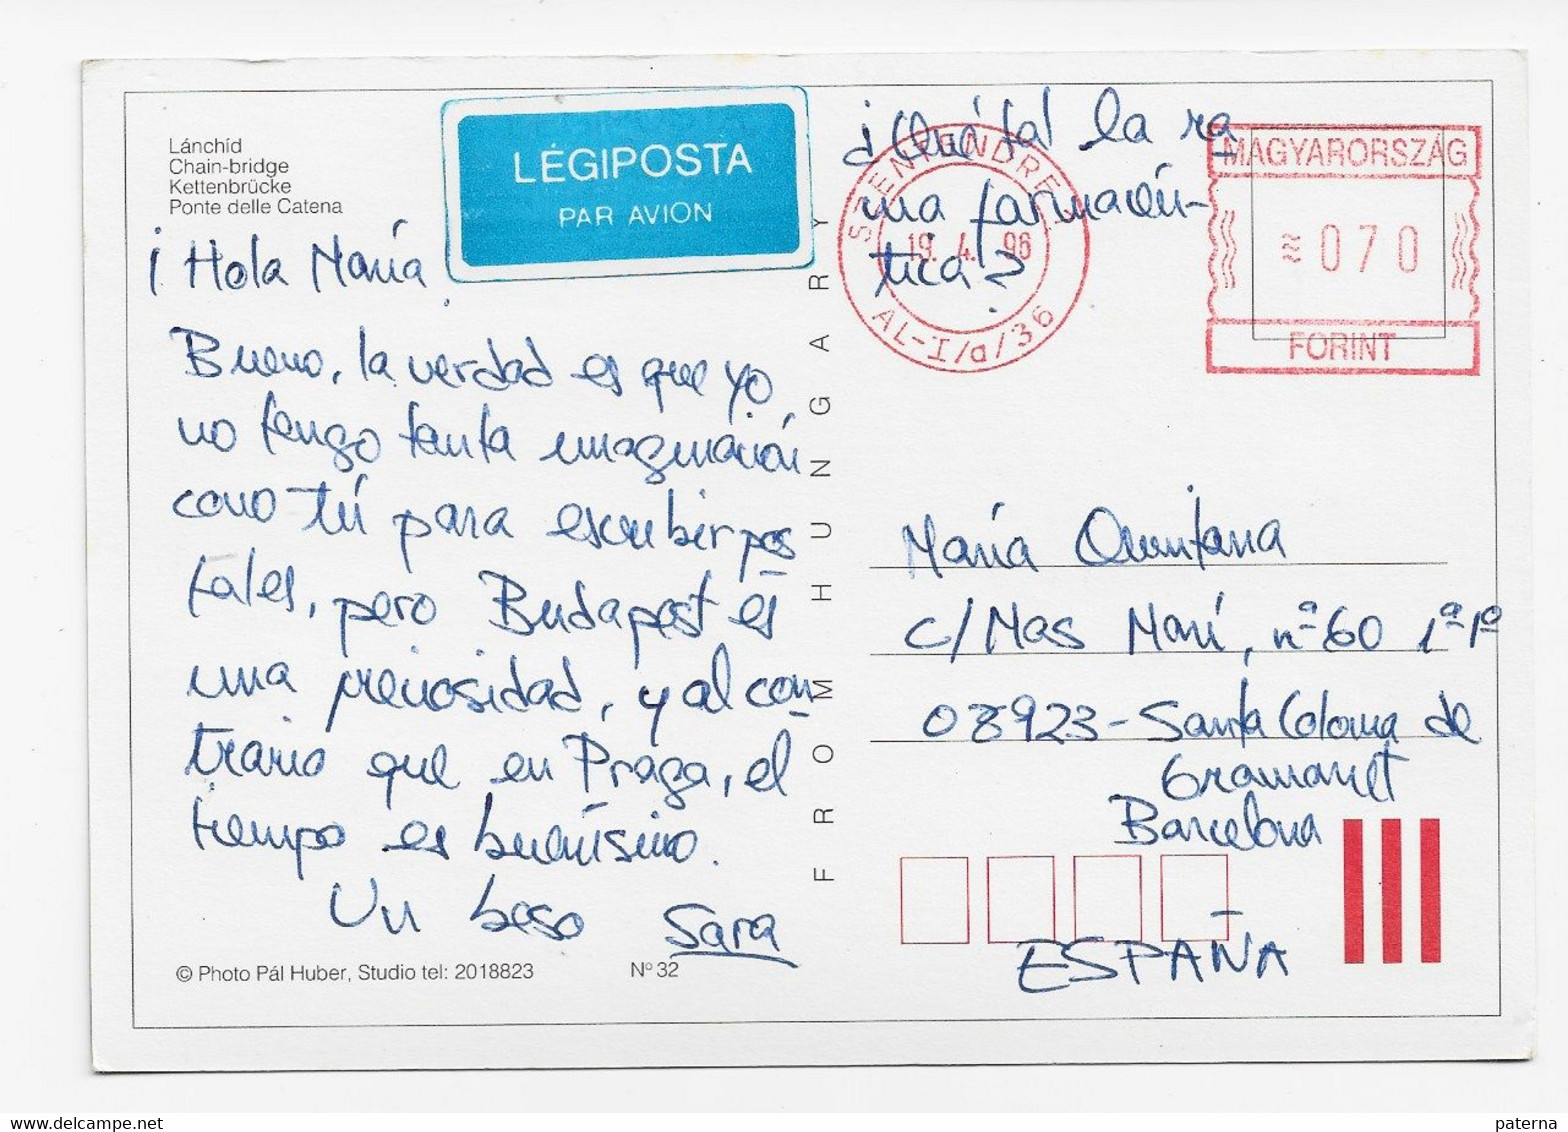 Lánchíd
Chain-bridge
Kettenbrücke
Ponte delle Catena
LÉGIPOSTA
PAR AVION
¡Hola María
Bueno, la verdad es que yo
no tengo tanta imaginación
como tú para escribir pos
tales, pero Budapest es
una preciosidad, y al con
trario que en Praga, el
tiempo es buenísimo.
Un beso Sara
© Photo Pál Huber, Studio tel: 2018823
Nº 32
FROM HUNGARY
¿Qué tal la ra
ma farmacéu-
tica?
SZENTENDRE 1
19. 4. 96
AL-I/a/36
MAGYARORSZÁG
≈070
FORINT
María Quintana
C/Mas Marí, nº 60 1ª 1ª
08923-Santa Coloma de
Gramanet
Barcelona
ESPAÑA
paterna